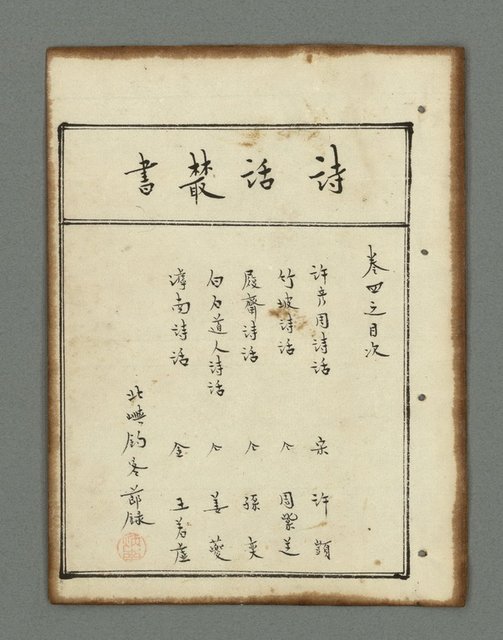 詩話叢書
卷四之目次
許彥周詩話 宋 許顗
竹坡詩話 仝 周紫芝
履齋詩話 仝 孫奕
白石道人詩話 仝 姜夔
滹南詩話 金 王若虛
北嶼釣客節錄